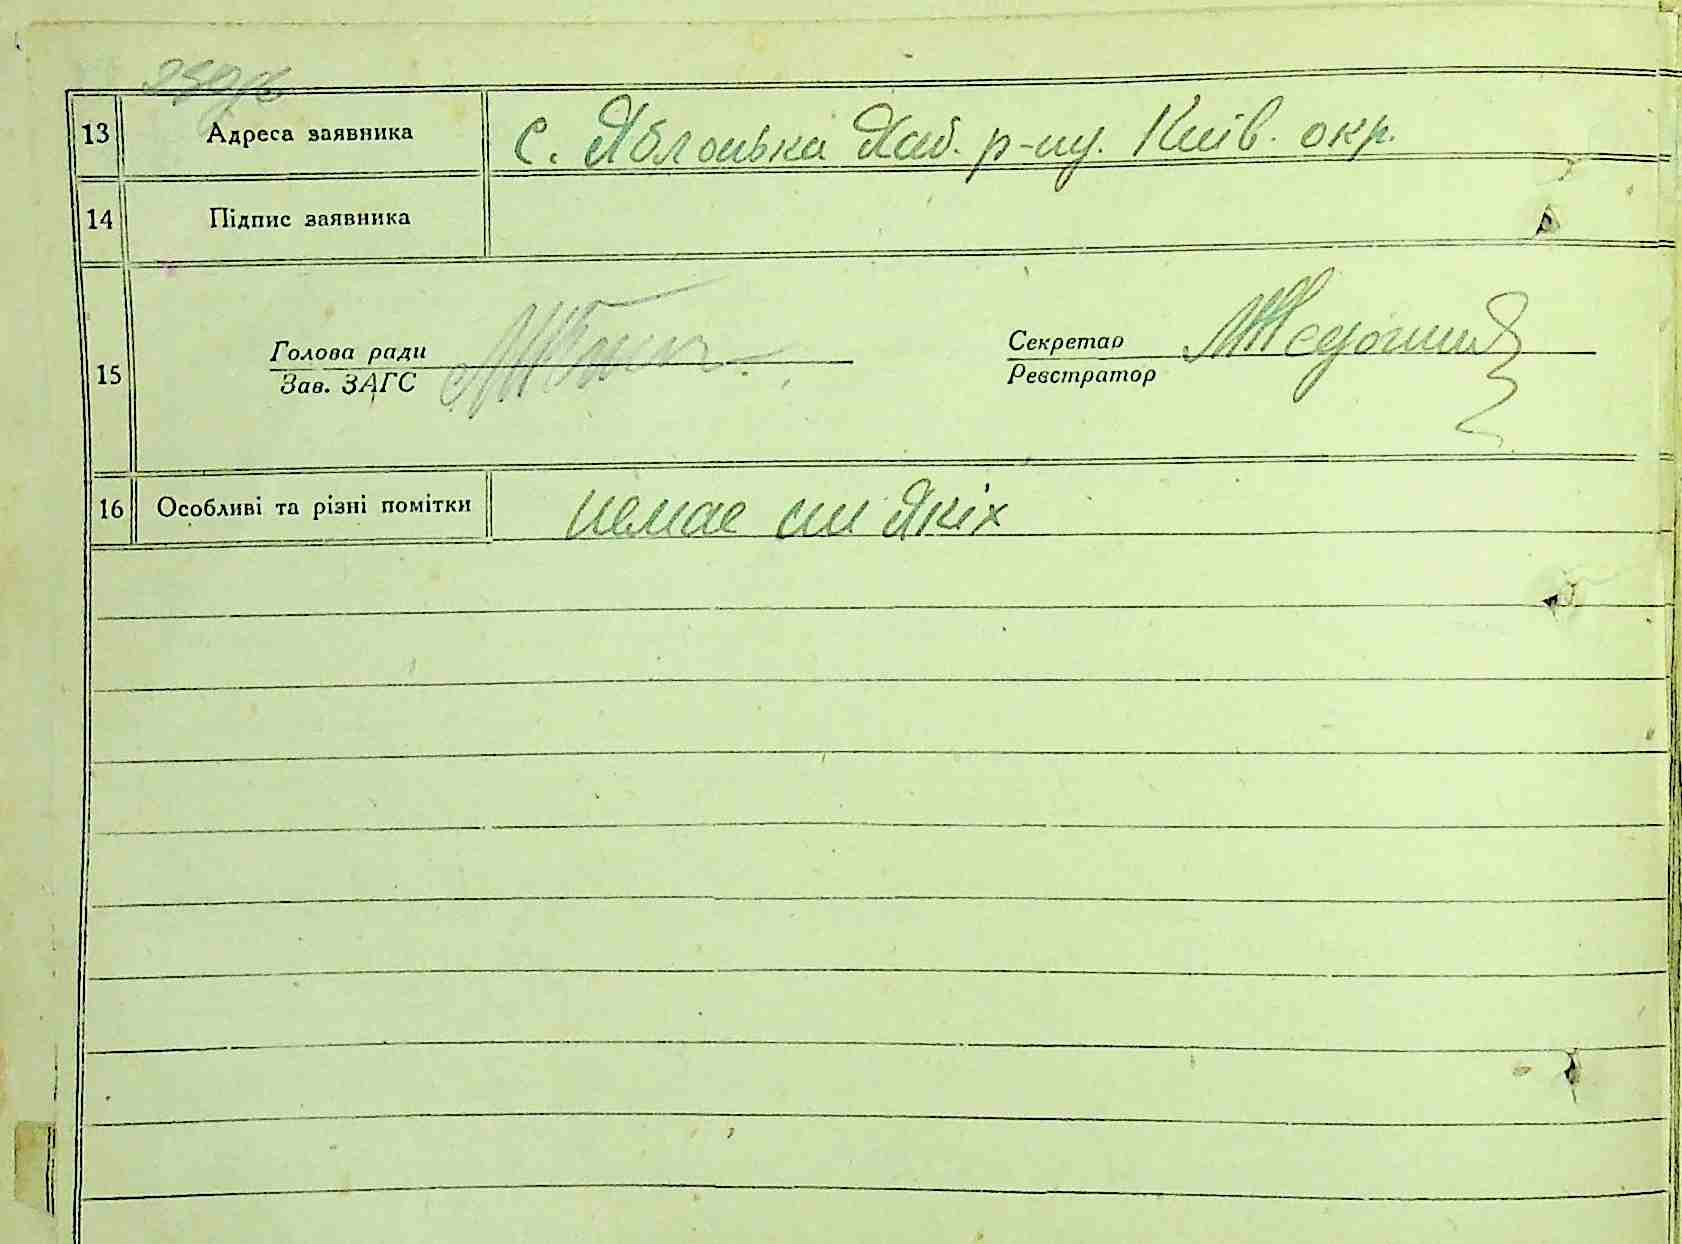 13 Адреса заявника С. Яблонька Каб. р-ну. Київ. окр.
14 Підпис заявника
15 Голова ради Секретар
Зав. ЗАГС Реєстратор
16 Особливі та різні помітки немає ни Якіх